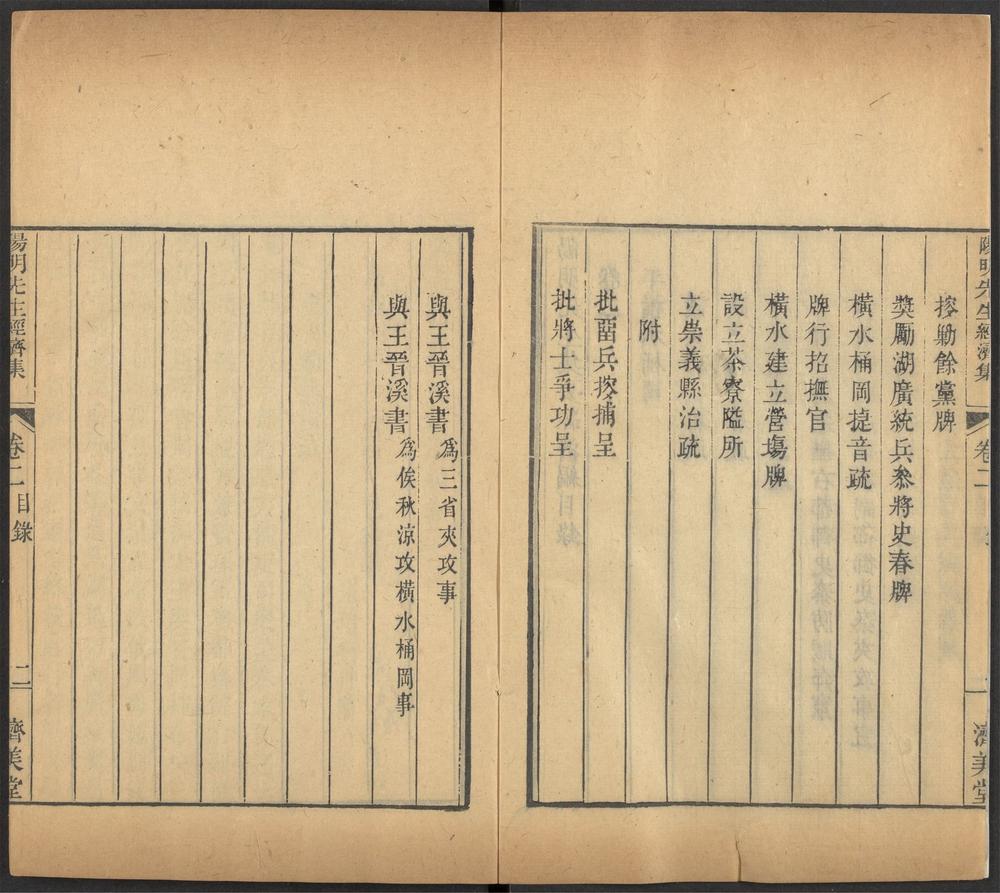 陽明先生經濟集 卷二 二 濟美堂
搜勦餘黨牌
獎勵湖廣統兵參將史春牌
橫水桶岡捷音疏
牌行招撫官
橫水建立營塲牌
設立茶寮隘所
立崇義縣治疏
附
批留兵搜捕呈
批將士爭功呈
與王晉溪書為三省夾攻事
與王晉溪書為俟秋涼攻橫水桶岡事
陽明先生經濟集 卷二目錄 二 濟美堂